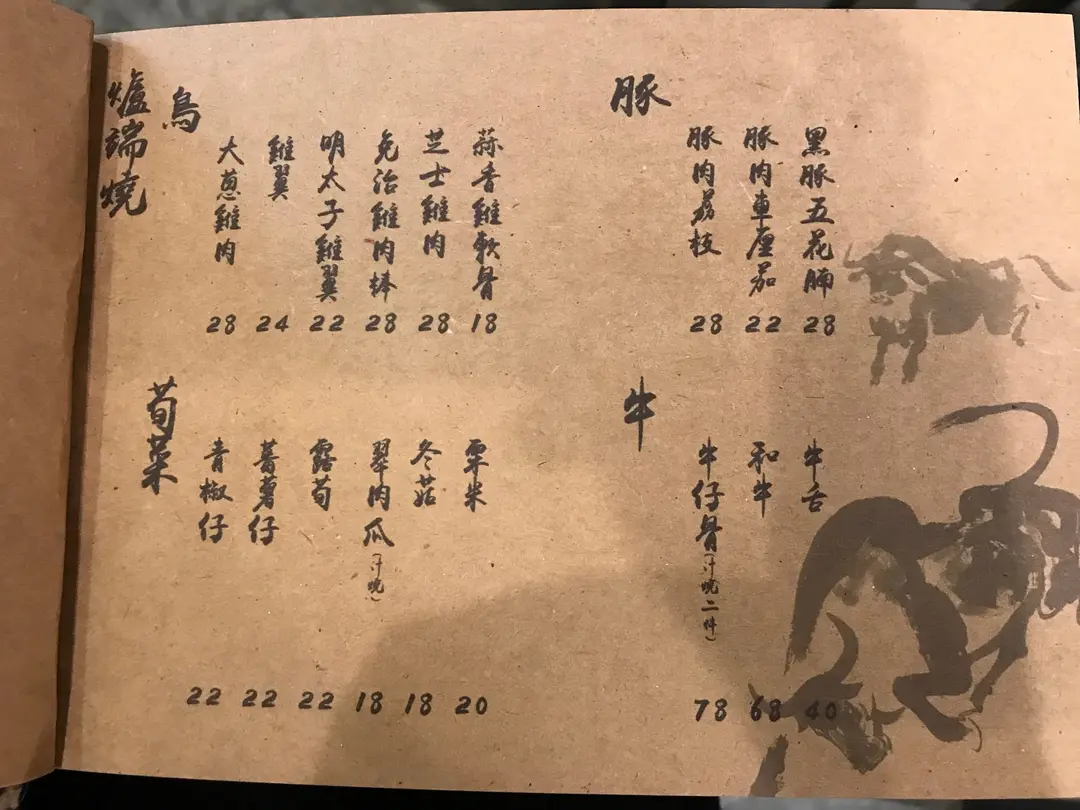 爐端燒
鳥
大蔥雞肉 28
雞翼 24
明太子雞翼 22
免治雞肉棒 28
芝士雞肉 28
蒜香雞軟骨 18
豚
豚肉荔枝 28
豚肉車厘茄 22
黑豚五花腩 28
荀菜
青椒仔 22
薯仔 22
露荀 22
翠肉瓜(汁燒) 18
冬菇 18
粟米 20
牛
牛仔骨(汁燒二件) 78
和牛 68
牛舌 40